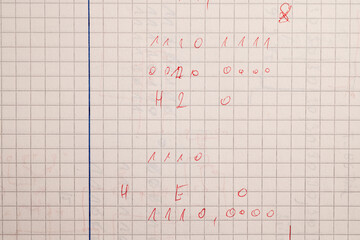 1110 1111
0020 0000
H 2 0
1110
H E 0
1110,0000